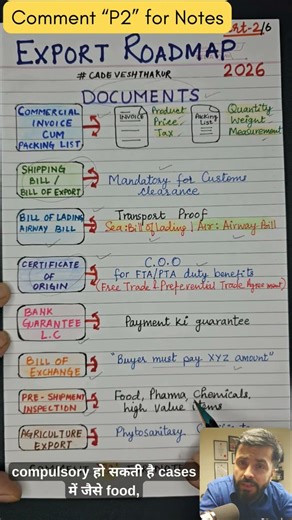 Comment “P2” for Notes
Part-2/6
EXPORT ROADMAP
#CADEVESHTHAKUR
2026
DOCUMENTS
COMMERCIAL
INVOICE
CUM
PACKING LIST
INVOICE
Product
Price
Tax
Packing
List
Quantity
Weight
Measurement
SHIPPING
BILL /
BILL OF EXPORT
Mandatory for Customs
clearance
BILL OF LADING
AIRWAY BILL
Transport Proof
Sea: Bill of lading | Air: Airway Bill
CERTIFICATE
OF
ORIGIN
C.O.O
for FTA/PTA duty benefits
(Free Trade & Preferential Trade Agreement)
BANK
GUARANTEE
L.C
Payment ki guarantee
BILL OF
EXCHANGE
"Buyer must pay XYZ amount"
PRE-SHIPMENT
INSPECTION
Food, Phama, Chemicals,
high value items
AGRICULTURE
EXPORT
Phytosanitary
compulsory हो सकती है cases
में जैसे food,